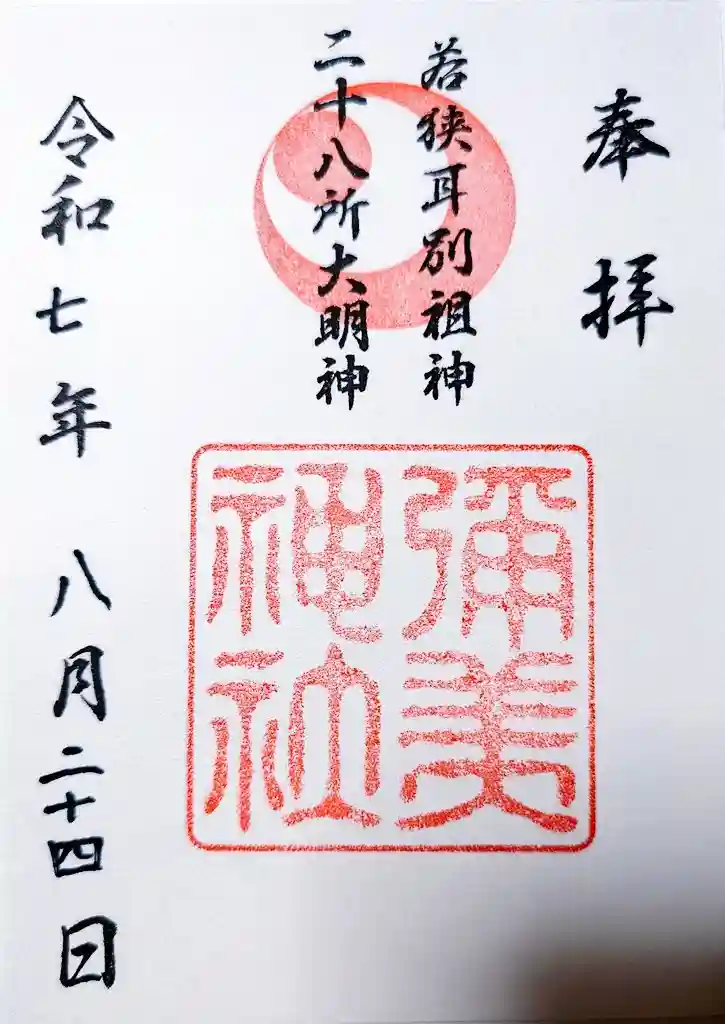 奉拝
若狭耳別祖神
二十八所大明神
彌美
神社
令和七年八月二十四日